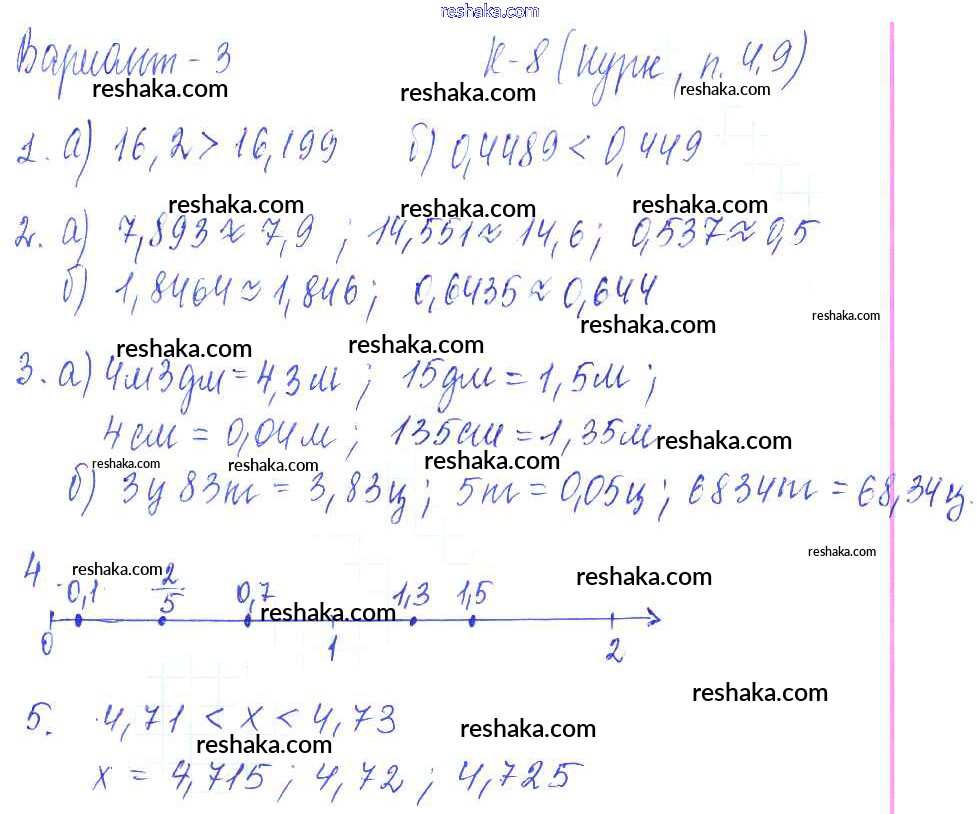 reshaka.com
Вариант-3 К-8 (Нурк, п. 4,9)
reshaka.com reshaka.com reshaka.com
1. а) 16,2 > 16,199 б) 0,4489 < 0,449
reshaka.com reshaka.com reshaka.com
2. а) 7,893 ≈ 7,9 ; 14,551 ≈ 14,6 ; 0,537 ≈ 0,5
б) 1,8464 ≈ 1,846 ; 0,6435 ≈ 0,644
reshaka.com
reshaka.com
reshaka.com reshaka.com
3. а) 4м3дм = 4,3м ; 15дм = 1,5м ;
4см = 0,04м ; 135см = 1,35м
reshaka.com
reshaka.com reshaka.com reshaka.com
б) 3ц 83т = 3,83ц ; 5т = 0,05ц ; 6834т = 68,34ц.
reshaka.com
reshaka.com reshaka.com
4 0,1 2/5 0,7 1,3 1,5
reshaka.com
0 1 2
reshaka.com
5. 4,71 < х < 4,73
reshaka.com reshaka.com
х = 4,715 ; 4,72 ; 4,725